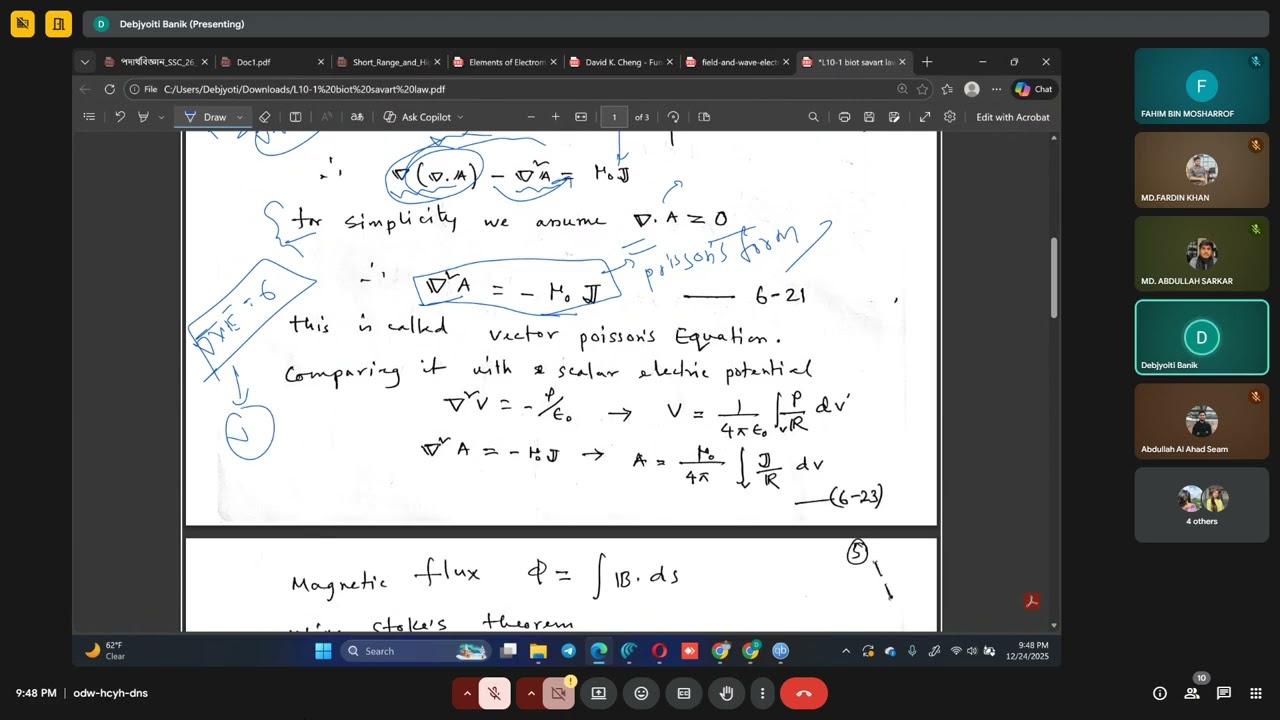 D Debjyoiti Banik (Presenting)
পদার্থবিজ্ঞান_SSC_26_ Doc1.pdf Short_Range_and_Hi Elements of Electrom David K. Cheng - Fun field-and-wave-elect *L10-1 biot savart law
File C:/Users/Debjyoti/Downloads/L10-1%20biot%20savart%20law.pdf Chat
Draw aあ Ask Copilot 1 of 3 Edit with Acrobat
∴ ∇(∇.A) – ∇²A = μ₀J
for simplicity we assume ∇.A = 0
∴ ∇²A = – μ₀ J —— 6-21
poisson's form
this is called vector poisson's Equation.
Comparing it with a scalar electric potential
∇²V = -ρ/ε₀ → V = 1/4πε₀ ∫v ρ/R dv'
∇²A = -μ₀J → A = μ₀/4π ∫v J/R dv
——(6-23)
5
Magnetic flux Φ = ∫ B.ds
using stoke's theorem
F
FAHIM BIN MOSHARROF
MD.FARDIN KHAN
MD. ABDULLAH SARKAR
D
Debjyoiti Banik
Abdullah Al Ahad Seam
4 others
62°F
Clear
Search
9:48 PM
12/24/2025
9:48 PM | odw-hcyh-dns
10